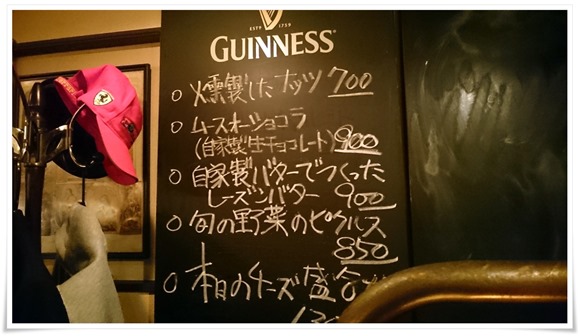 ESTD 1759
GUINNESS
○ 燻製したナッツ 700
○ ムースオーショコラ
(自家製生チョコレート) 900
○ 自家製バターでつくった
レーズンバター 900
○ 旬の野菜のピクルス
850
○ 本日のチーズ盛合